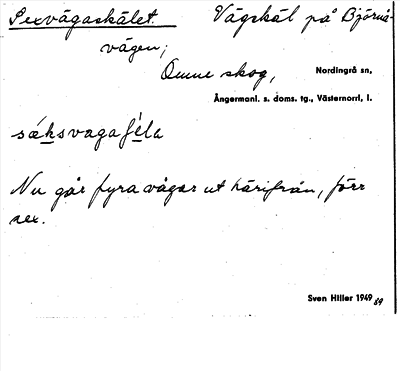 Sexvägaskälet Vägskäl på Björnå-
vägen;
Omne skog, Nordingrå sn,
Ångermanl. s. doms. tg., Västernorrl. l.
Nu går fyra vägar ut härifrån, förr
sex.
Sven Hiller 1949